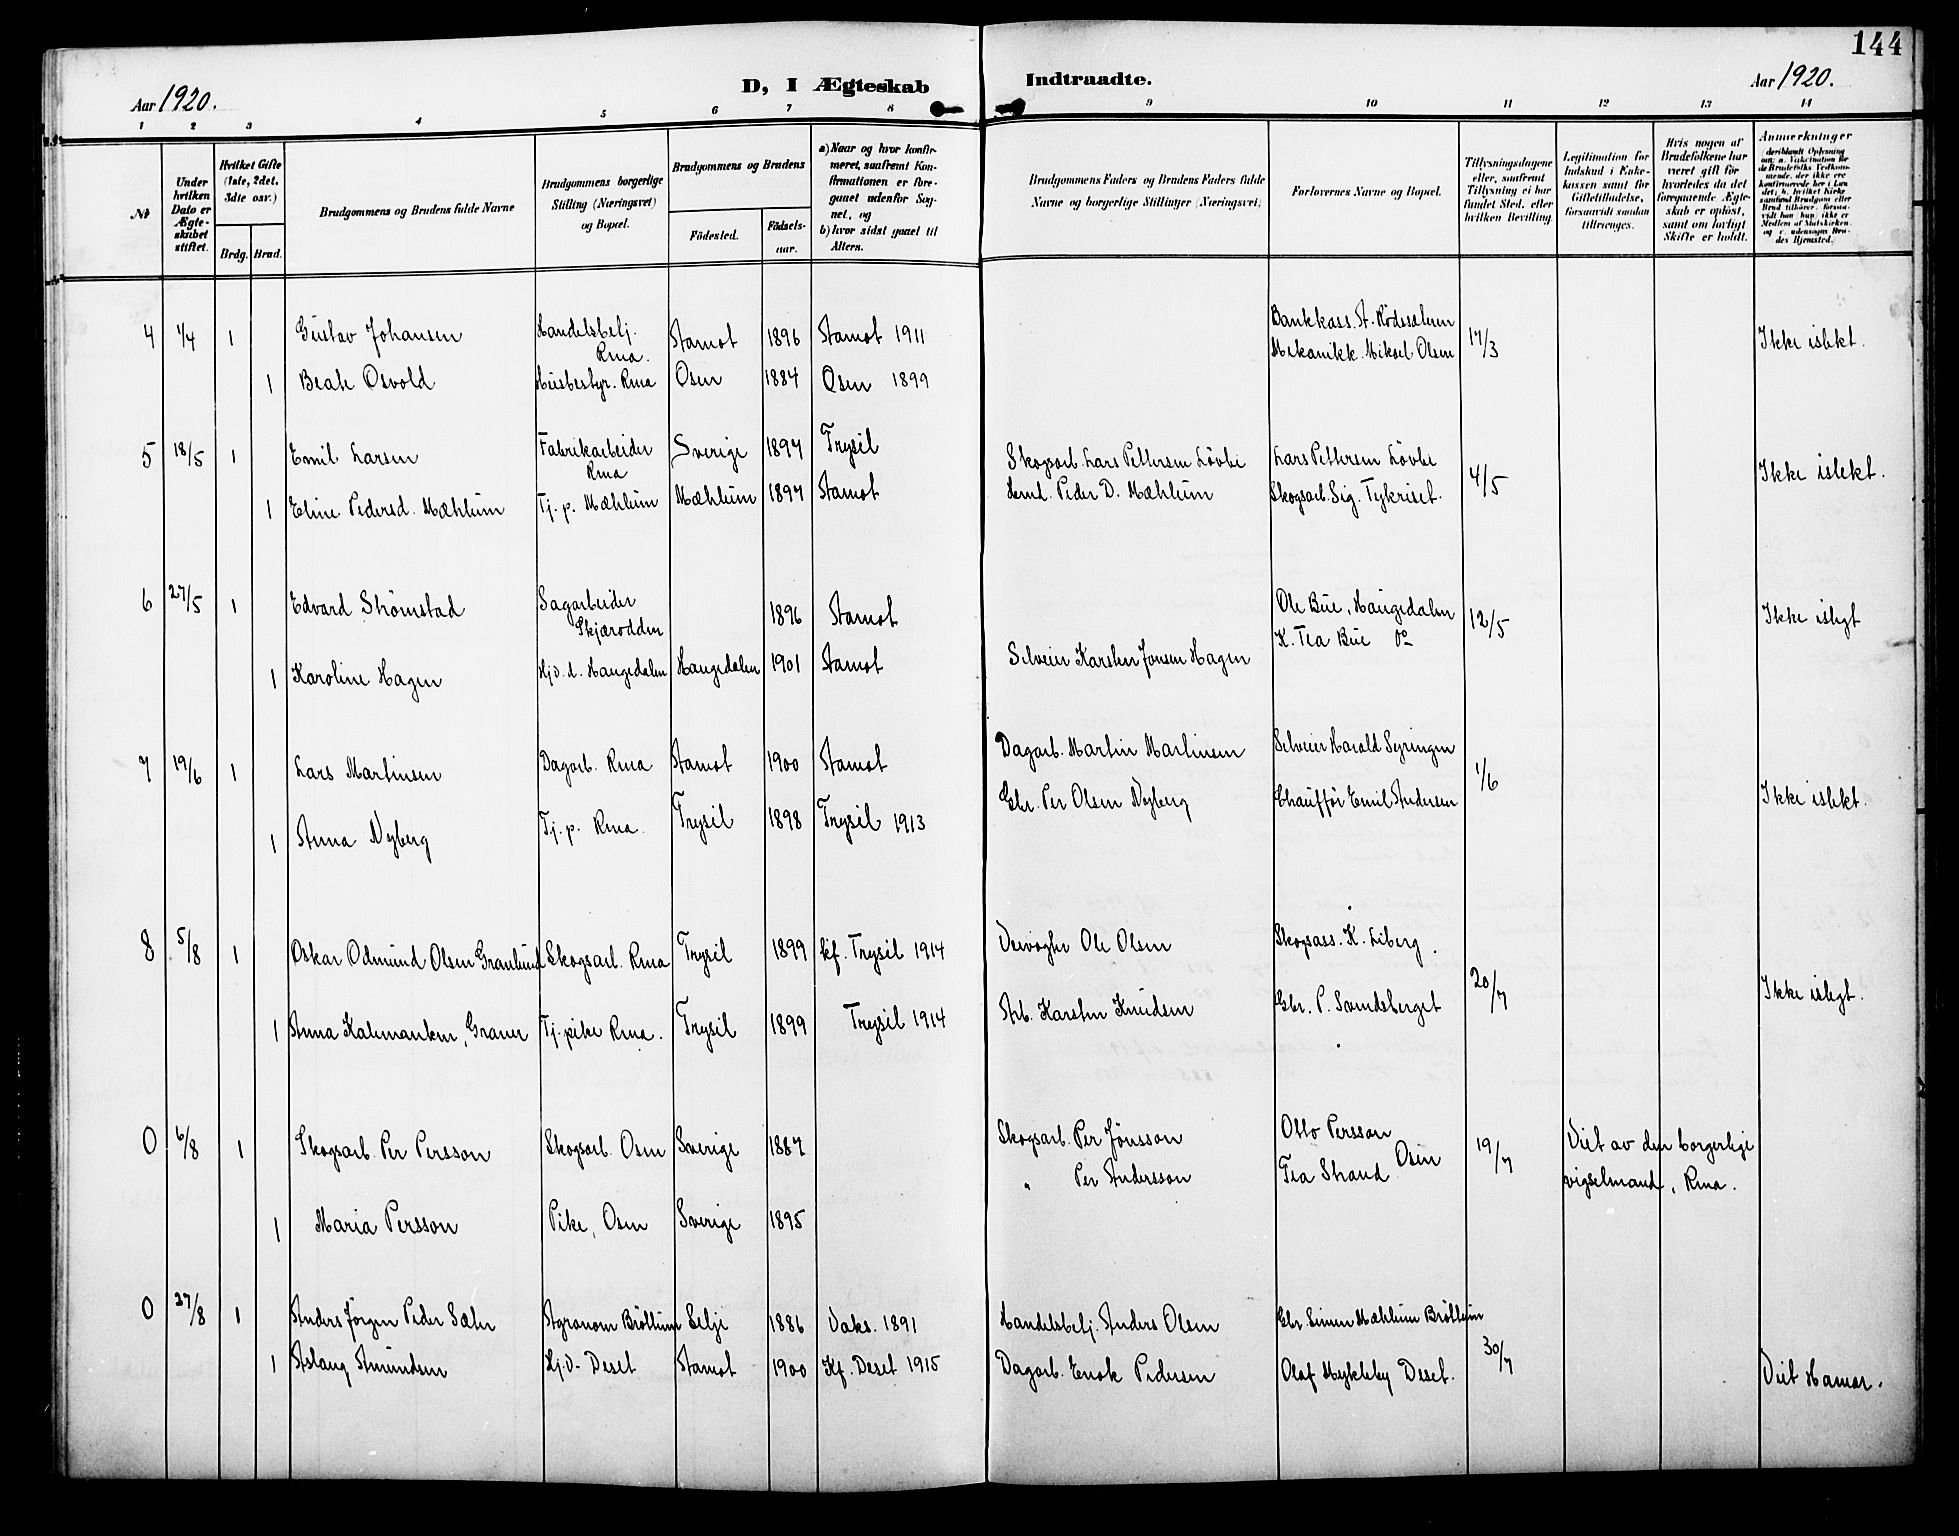 144
Aar 1920.
D, I Ægteskab Indtraadte.
Aar 1920.
1 2 3 4 5 6 7 8 9 10 11 12 13 14
№
Under hvilken Dato er Ægteskabet stiftet.
Hvilket Gifte (1ste, 2det, 3dte osv.)
Brdg. Brud.
Brudgommens og Brudens fulde Navne
Brudgommens borgerlige Stilling (Næringsvei) og Bopæl.
Brudgommens og Brudens
Fødested.
Fødselsaar.
a) Naar og hvor konfirmeret, saafremt Konfirmationen er foregaaet udenfor Sognet, og
b) hvor sidst gaaet til Alters.
Brudgommens Faders og Brudens Faders fulde Navne og borgerlige Stillinger (Næringsvei)
Forlovernes Navne og Bopæl.
Tillysningsdagene eller, saafremt Tillysning ei har fundet Sted, efter hvilken Bevilling.
Legitimation for Indskud i Enkekassen samt for Giftetilladelse, forsaavidt saadan tiltrænges.
Hvis nogen af Brudefolkene har været gift før hvorledes da det foregaaende Ægteskab er opløst, samt om lovligt Skifte er holdt.
Anmærkninger
4 1/4 1 Gustav Johansen Handelsbetj. Rena. Aamot 1896 Aamot 1911 Bankkass. A. Rødssæteren 17/3 Ikke islekt.
Mekanikk. Miksel Olsen
1 Beate Osvold Husbestyr. Rena Osen 1884 Osen 1899
5 18/5 1 Emil Larsen Fabrikarbeider Rena Sverige 1897 Trysil Skogsarb. Lars Pettersen Løvbe Lars Pettersen Løvbe 4/5 Ikke islekt.
1 Eline Pedersd. Mæhlum Tj. p. Mæhlum Mæhlum 1897 Aamot Peder D. Mæhlum Skogsarb. Sig. Tykriset.
6 27/5 1 Edvard Strømstad Sagarbeider Skjærodden 1896 Aamot Ole Bue, Haugedalen 12/5 Ikke isligt
K. Tea Bue Do
1 Karoline Hagen Hj. d. Haugedalen Haugedalen 1901 Aamot Selveier Karsten Jonsen Hagen
7 19/6 1 Lars Martinsen Dagarb. Rena Aamot 1900 Aamot Dagarb. Martin Martinsen Selveier Harald Syringen 1/6 Ikke islekt.
1 Anna Nyberg Tj. p. Rena. Trysil 1898 Trysil 1913 Gbr. Per Olsen Nyberg Chauffør Emil Andersen
8 5/8 1 Oskar Odmund Olsen Granlund Skogsarb. Rena Trysil 1899 kf. Trysil 1914 Veivogter Ole Olsen Skogsass. K. Liberg. 20/7 Ikke isligt.
1 Anna Graner Tj. pike Rena. Trysil 1899 Trysil 1914 Arb. Karsten Knudsen Gbr. P. Sundsberget
0 6/8 1 Skogsarb. Per Persson Skogsarb. Osen Sverige 1887 Skogsarb. Per Jönsson Otto Persson 19/7 Viet av den borgerlige
" Per Andersson Tea Strand Osen vigselmand, Rena.
1 Maria Persson Pike, Osen Sverige 1895
0 27/8 1 Anders Jørgen Peder Sæter Agronom Brøttum Selje 1886 Vaks. 1891 Handelsbetj. Anders Olsen Gbr. Simen Mæhlum Brøttum 30/7
1 Aslaug Amundsen Hj. d- Deset Aamot 1900 Kf. Deset 1915 Dagarb. Enok Pedersen Olaf Mykleby Deset. Viet Hamar.